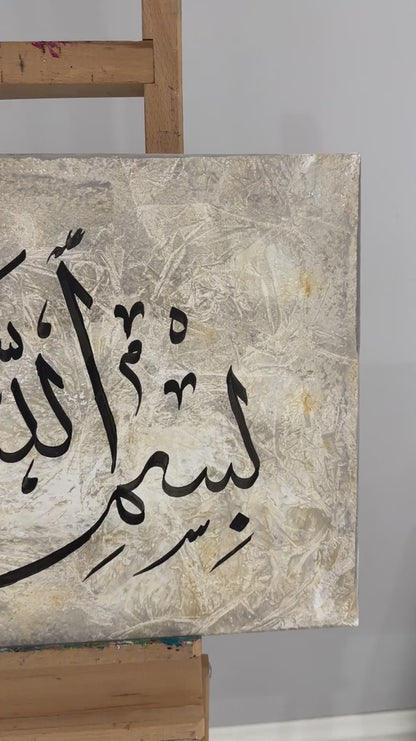 بِسمِ الله